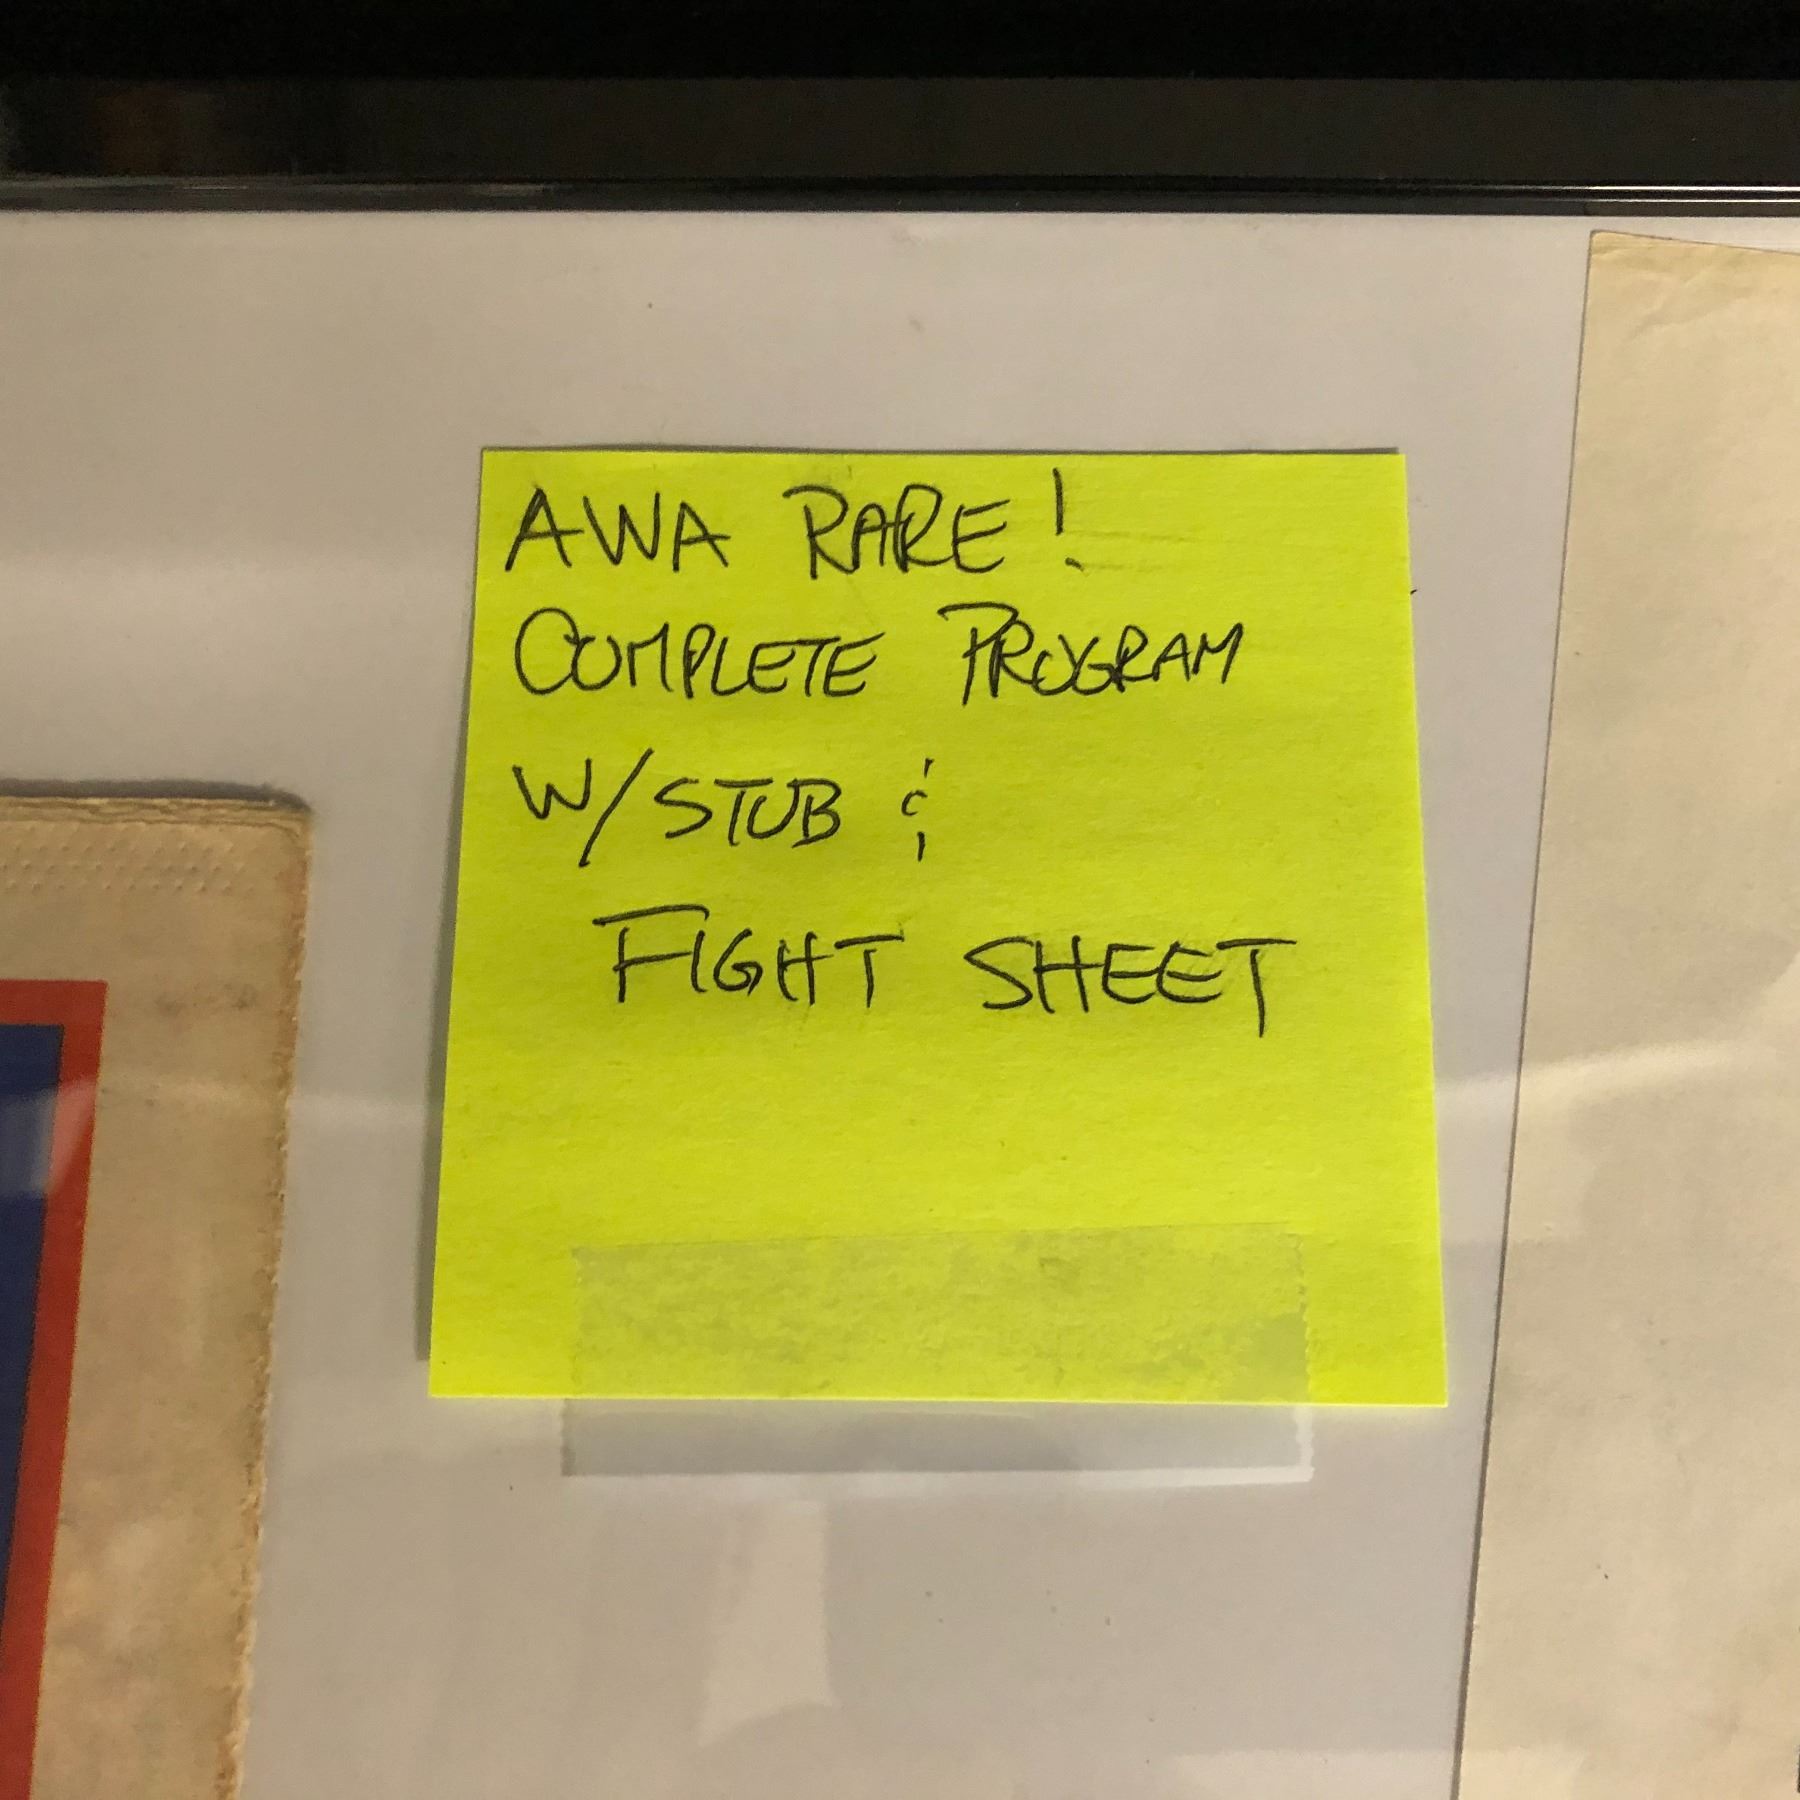 AWA RARE!
COMPLETE PROGRAM
W/STUB &
FIGHT SHEET